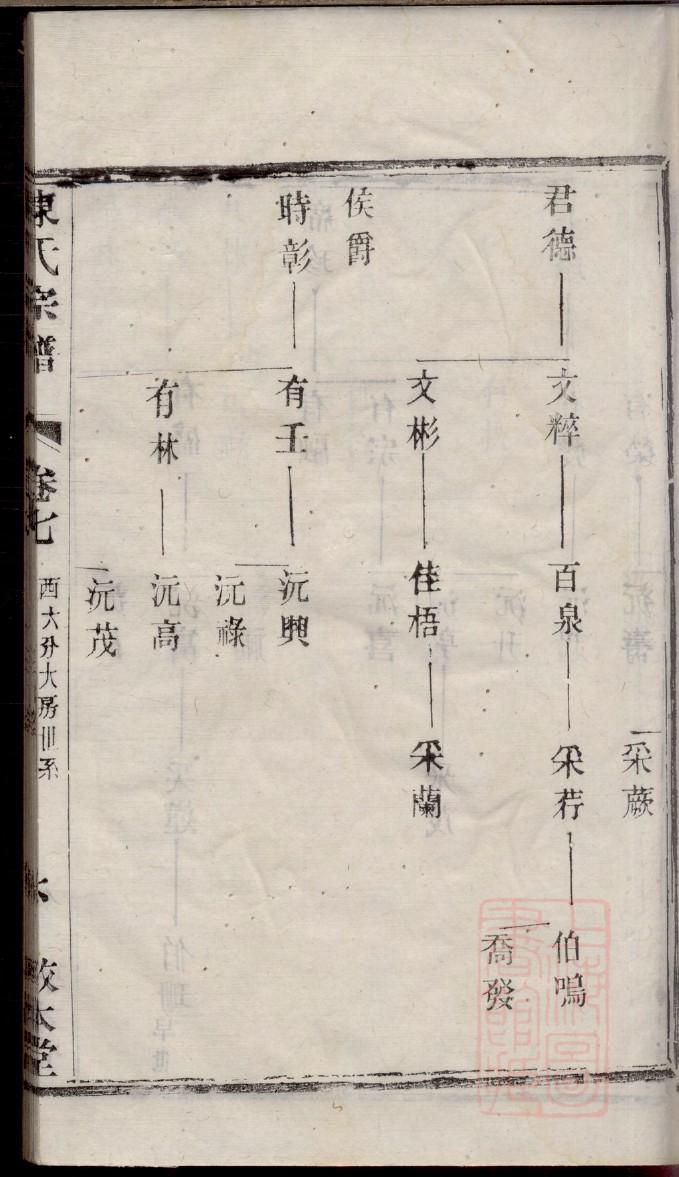 采蕨
君德
文粹
百泉
采荇
伯鳴
喬發
文彬
佳梧
采蘭
侯爵
時彰
有壬
沅興
沅祿
有林
沅高
沅茂
陳氏宗譜
卷七
西大分大房世系
敦本堂